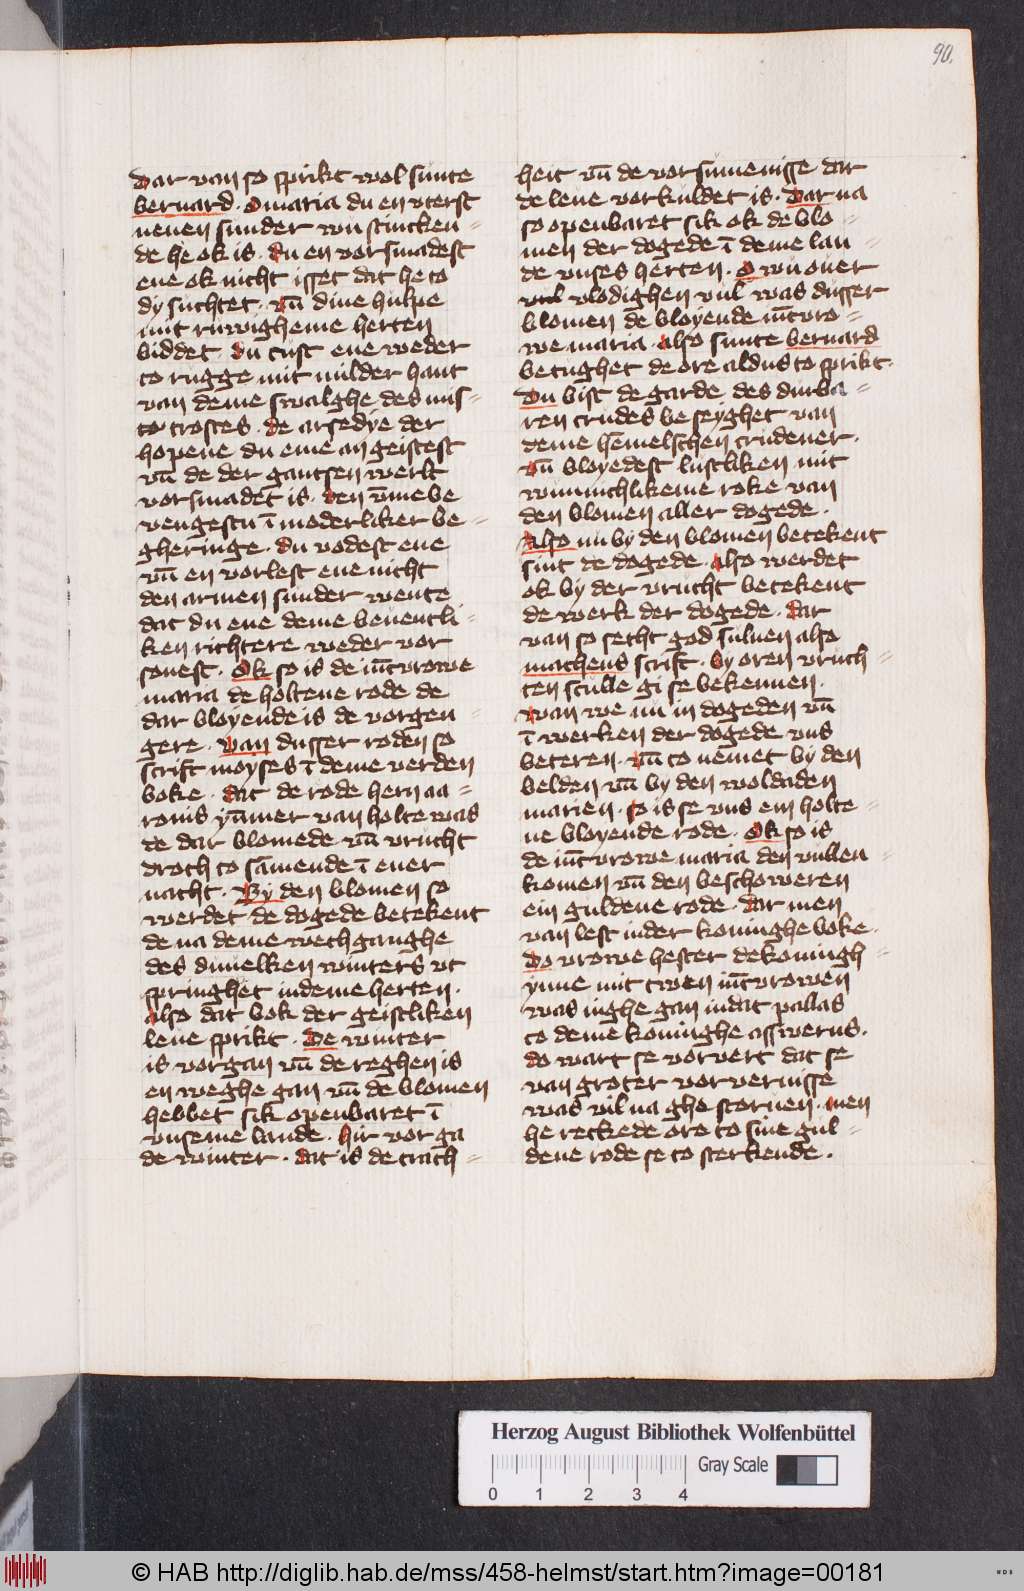 90.
Dar van so sprikt wol sunte
bernard . O maria du en vterst
nenen sunder wu stincken=
de he ok is . du en vorsmadest
ene ok nicht isset dat he to
dy suchtet . vn̄ dine hulpe
mit ruwigheme herten
biddet . Du tust ene weder
to rugge mit milder hant
van deme swalghe des mis=
to trostes . de arsedye der
hopene du eme an geistest
vn̄ de der gantsen werlt
vorsmadet is . den vmme be
vengestu ī moderliker be=
gheringe . Du vodest ene
vn̄ en vorlest ene nicht
den armen sunder wente
dat du ene deme beuentli=
ken richtere weder vor
sonest . Ok so is de iūcvrowe
maria de holtene rode de
dar bloyende is de vorgen=
gere . van dusser roden so
scrift moyses ī deme verden
boke . dat de rode hern aa=
ronis ym̄er van holte was
de dar blomede vn̄ vrucht
droch to sāmende ī ener
nacht . By den blomen so
werdet de dogede betekent
de na deme wechganghe
des dunelken winters vt
springhet in deme herten .
Also dat bok der geistliken
leue sprikt . De winter
is vorgan vn̄ de reghen is
en weghe gan vn̄ de blomen
hebbet sik openbaret ī
vnseme lande . hir vor ga
de winter . dat is de trach=
heit vn̄ de vorsumenisse dar
de leue vorkuldet is . Dar na
so openbaret sik ok de blo=
men der dogede ī deme lan=
de vnses herten . O wu ouer
vul vlodighen vul was dusser
blomen de bloyende iūcvro=
we maria . also sunte bernard
betughet de ore aldus to sprikt .
Du bist de garde des durba=
ren crudes beseyghet van
deme hēmelschen crudener .
Du bloyedest lustliken mit
wunnichlikeme roke van
den blomen aller dogede .
Also nu by den blomen betekent
sint de dogede . also werdet
ok by der vrucht betekent
de werk der dogede . dar
van so secht god suluen also
matheus scrift . by oren vruch=
ten sculle gi se bekennen .
wan we nu in dogeden vn̄
ī werken der dogede vns
beteren . vn̄ to nemet by den
belden vn̄ by den woldaden
marien . so is se vns ein holte=
ne bloyende rode . Ok so is
de iūcvrowe maria den vullen=
komen vn̄ den beschoweren
ein guldene rode . dar men
van lest in der koninghe boke .
Do vrowe hester de koningh=
ynne mit twen iūcvrowen
was inghe gan in dat pallas
to deme koninghe asswerus .
do wart se vorvert dat se
van groter vorvernisse
was vil na ghe storuen . men
he reckede ore to sine gul=
dene rode se to sterkende .
Herzog August Bibliothek Wolfenbüttel
Gray Scale
0 1 2 3 4
© HAB http://diglib.hab.de/mss/458-helmst/start.htm?image=00181